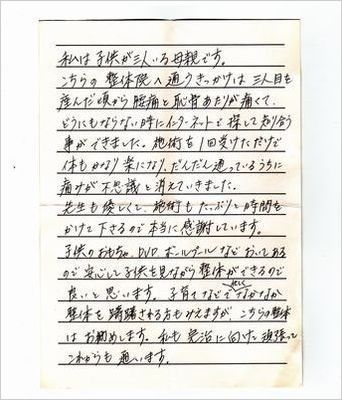 私は子供が三人いる母親です。
こちらの整体院へ通うきっかけは三人目を
産んだ頃から腰痛と恥骨あたりが痛くて、
どうにもならない時にインターネットで探して知り合う
事ができました。施術を1回受けただけで
体もかなり楽になり、だんだん通っているうちに
痛みが不思議と消えていきました。
先生も優しくて、施術もたっぷりと時間を
かけて下さるので本当に感謝しています。
子供のおもちゃ、DVD、ボールプールなどおいてある
ので安心して子供を見ながら整体ができるので
良いと思います。子育てなどで忙しくなかなか
整体を躊躇される方もみえますが、こちらの整体
はお勧めします。私も完治に向けて頑張って
これからも通います。